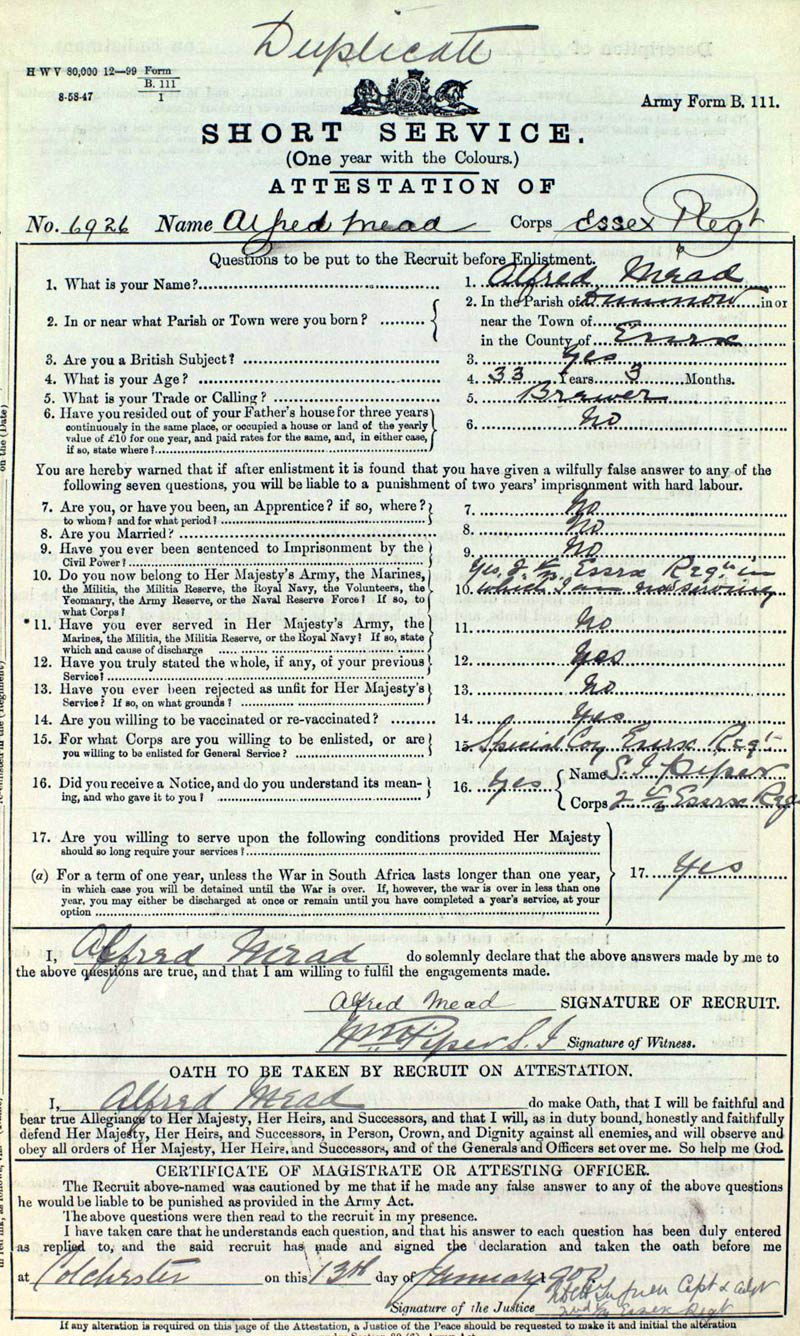 Duplicate
H W V 80,000 12—99 Form B. 111
8-58-47 1
Army Form B. 111.
SHORT SERVICE.
(One year with the Colours.)
ATTESTATION OF
No. 6926 Name Alfred Mead Corps Essex Regt
Questions to be put to the Recruit before Enlistment.
1. What is your Name? 1. Alfred Mead
2. In or near what Parish or Town were you born? 2. In the Parish of Dunmow in or
near the Town of
in the County of Essex
3. Are you a British Subject? 3. Yes
4. What is your Age? 4. 33 Years 3 Months.
5. What is your Trade or Calling? 5. Brewer
6. Have you resided out of your Father's house for three years
continuously in the same place, or occupied a house or land of the yearly
value of £10 for one year, and paid rates for the same, and, in either case,
if so, state where? 6. No
You are hereby warned that if after enlistment it is found that you have given a wilfully false answer to any of the
following seven questions, you will be liable to a punishment of two years' imprisonment with hard labour.
7. Are you, or have you been, an Apprentice? if so, where?
to whom? and for what period? 7. No
8. Are you Married? 8. No
9. Have you ever been sentenced to Imprisonment by the
Civil Power? 9. No
10. Do you now belong to Her Majesty's Army, the Marines,
the Militia, the Militia Reserve, the Royal Navy, the Volunteers, the
Yeomanry, the Army Reserve, or the Naval Reserve Force? If so, to
what Corps? 10. Yes, 2 V.B. Essex Regt in
which I am now serving
*11. Have you ever served in Her Majesty's Army, the
Marines, the Militia, the Militia Reserve, or the Royal Navy? If so, state
which and cause of discharge 11. No
12. Have you truly stated the whole, if any, of your previous
Service? 12. Yes
13. Have you ever been rejected as unfit for Her Majesty's
Service? If so, on what grounds? 13. No
14. Are you willing to be vaccinated or re-vaccinated? 14. Yes
15. For what Corps are you willing to be enlisted, or are
you willing to be enlisted for General Service? 15 Special Coy Essex Regt
16. Did you receive a Notice, and do you understand its mean-
ing, and who gave it to you? 16. Yes Name S. I Piper
Corps 2 V.B. Essex Reg
17. Are you willing to serve upon the following conditions provided Her Majesty
should so long require your services?
(a) For a term of one year, unless the War in South Africa lasts longer than one year, 17. Yes
in which case you will be detained until the War is over. If, however, the war is over in less than one
year, you may either be discharged at once or remain until you have completed a year's service, at your
option
I, Alfred Mead do solemnly declare that the above answers made by me to
the above questions are true, and that I am willing to fulfil the engagements made.
Alfred Mead SIGNATURE OF RECRUIT.
Wm Piper S. I Signature of Witness.
OATH TO BE TAKEN BY RECRUIT ON ATTESTATION.
I, Alfred Mead do make Oath, that I will be faithful and
bear true Allegiance to Her Majesty, Her Heirs, and Successors, and that I will, as in duty bound, honestly and faithfully
defend Her Majesty, Her Heirs, and Successors, in Person, Crown, and Dignity against all enemies, and will observe and
obey all orders of Her Majesty, Her Heirs, and Successors, and of the Generals and Officers set over me. So help me God.
CERTIFICATE OF MAGISTRATE OR ATTESTING OFFICER.
The Recruit above-named was cautioned by me that if he made any false answer to any of the above questions
he would be liable to be punished as provided in the Army Act.
The above questions were then read to the recruit in my presence.
I have taken care that he understands each question, and that his answer to each question has been duly entered
as replied to, and the said recruit has made and signed the declaration and taken the oath before me
at Colchester on this 13th day of January 1900
Signature of the Justice Capt & Adjt
2nd V.B. Essex Regt
If any alteration is required on this page of the Attestation, a Justice of the Peace should be requested to make it and initial the alteration